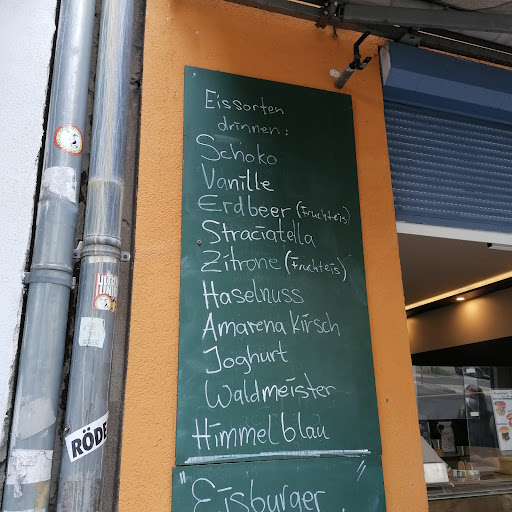 Eissorten
drinnen:
Schoko
Vanille
Erdbeer (Fruchteis)
Straciatella
Zitrone (Fruchteis)
Haselnuss
Amarena Kirsch
Joghurt
Waldmeister
Himmelblau
"Eisburger"
RÖDE